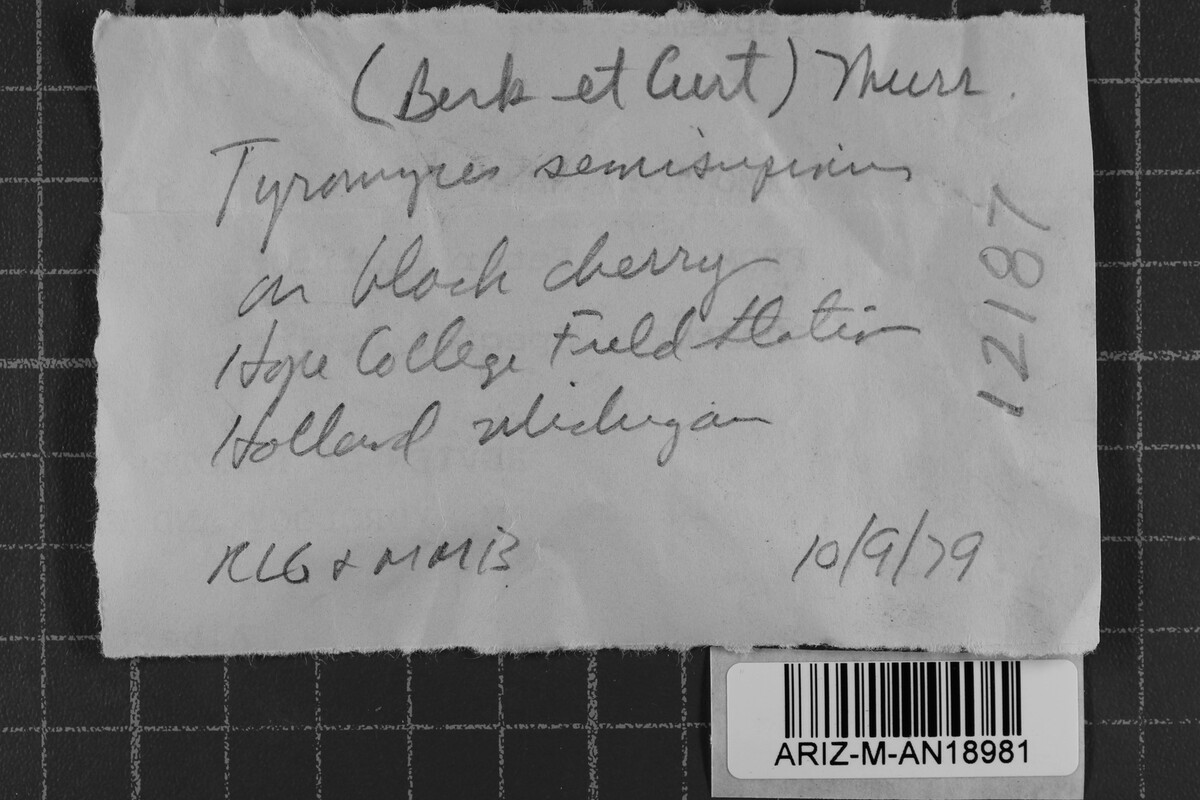 (Berk et Curt) Murr.
Tyromyces semisupinus
on black cherry
Hope College Field Station
Holland Michigan
12187
RLG & MMB
10/9/79
ARIZ-M-AN18981